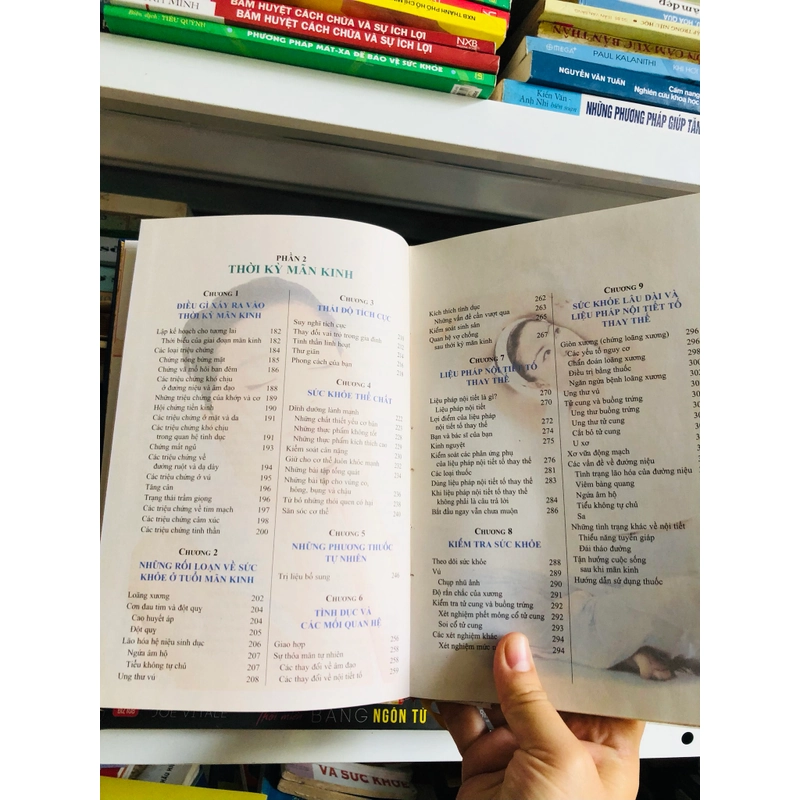 H MINH
NXB THÀNH PHỐ HỒ CHÍ MINH
BẤM HUYỆT CÁCH CHỮA VÀ SỰ ÍCH LỢI
Biên dịch: TIỂU QUỲNH
BẤM HUYỆT CÁCH CHỮA VÀ SỰ ÍCH LỢI
NXB
PHƯƠNG PHÁP MÁT-XA ĐỂ BẢO VỆ SỨC KHỎE
PAUL KALANITHI
NGUYỄN VĂN TUẤN
Cẩm nang
Nghiên cứu khoa học
Kiến Văn -
Anh Nhi biên soạn
NHỮNG PHƯƠNG PHÁP GIÚP TĂN
PHẦN 2
THỜI KỲ MÃN KINH
CHƯƠNG 1
ĐIỀU GÌ XẢY RA VÀO
THỜI KỲ MÃN KINH
Lập kế hoạch cho tương lai 182
Thời biểu của giai đoạn mãn kinh 182
Các loại triệu chứng 184
Chứng nóng bừng mặt 185
Chứng vã mồ hôi ban đêm 186
Các triệu chứng khó chịu
ở đường niệu và âm đạo 188
Những triệu chứng của khớp và cơ 189
Hội chứng tiền kinh 190
Các triệu chứng ở mặt và da 191
Các triệu chứng khó chịu
trong quan hệ tình dục 191
Chứng mất ngủ 193
Các triệu chứng về
đường ruột và dạ dày 194
Các triệu chứng ở vú 195
Tăng cân 196
Trạng thái trầm giọng 196
Các triệu chứng về tim mạch 197
Các triệu chứng cảm xúc 198
Các triệu chứng tinh thần 200
CHƯƠNG 2
NHỮNG RỐI LOẠN VỀ SỨC
KHỎE Ở TUỔI MÃN KINH
Loãng xương 202
Cơn đau tim và đột quỵ 204
Cao huyết áp 204
Đột quỵ 205
Lão hóa hệ niệu sinh dục 206
Ngứa âm hộ 207
Tiểu không tự chủ 207
Ung thư vú 208
CHƯƠNG 3
THÁI ĐỘ TÍCH CỰC
Suy nghĩ tích cực
Thay đổi vai trò trong gia đình
Tinh thần linh hoạt
Thư giãn
Phong cách của bạn
CHƯƠNG 4
SỨC KHỎE THỂ CHẤT
Dinh dưỡng lành mạnh
Những chất thiết yếu cơ bản
Những thực phẩm không tốt
Những thực phẩm kích thích
Kiểm soát cân nặng
Giữ cho cơ thể luôn khỏe mạnh
Những bài tập tổng quát
Những bài tập cho vùng cơ,
hông, bụng và chậu
Từ bỏ những thói quen có hại
Săn sóc cơ thể
CHƯƠNG 5
NHỮNG PHƯƠNG THUỐC
TỰ NHIÊN
Trị liệu bổ sung
CHƯƠNG 6
TÌNH DỤC VÀ
CÁC MỐI QUAN HỆ
Giao hợp
Sự thỏa mãn tự nhiên
Các thay đổi về âm đạo
Các thay đổi về nội tiết tố
Kích thích tình dục 262
Những vấn đề cần vượt qua 263
Kiểm soát sinh sản 265
Quan hệ vợ chồng
sau thời kỳ mãn kinh 267
CHƯƠNG 7
LIỆU PHÁP NỘI TIẾT TỐ
THAY THẾ
Liệu pháp nội tiết là gì? 270
Liệu pháp nội tiết 270
Lợi điểm của liệu pháp
nội tiết tố thay thế 272
Bạn và bác sĩ của bạn 274
Kinh nguyệt 275
Kiểm soát các phản ứng phụ
của liệu pháp nội tiết tố thay thế 276
Các loại thuốc 281
Dùng liệu pháp nội tiết tố thay thế 283
Khi liệu pháp nội tiết tố thay thế
không phải là câu trả lời 284
Bắt đầu ngay vẫn chưa muộn 286
CHƯƠNG 8
KIỂM TRA SỨC KHỎE
Theo dõi sức khỏe 288
Vú 289
Chụp nhũ ảnh 290
Độ rắn chắc của xương 291
Kiểm tra tử cung và buồng trứng 292
Xét nghiệm phết mỏng cổ tử cung 292
Soi cổ tử cung 293
Các xét nghiệm khác 294
Xét nghiệm mức 294
CHƯƠNG 9
SỨC KHỎE LÂU DÀI VÀ
LIỆU PHÁP NỘI TIẾT TỐ
THAY THẾ
Giòn xương (chứng loãng xương) 296
Các yếu tố nguy cơ
Chẩn đoán loãng xương
Điều trị bằng thuốc
Ngăn ngừa bệnh loãng xương
Ung thư vú
Tử cung và buồng trứng
Ung thư buồng trứng
Ung thư tử cung
Cắt bỏ tử cung
U xơ
Xơ vữa động mạch
Các vấn đề về đường niệu
Tình trạng lão hóa của đường niệu
Viêm bàng quang
Ngứa âm hộ
Tiểu không tự chủ
Sa
Những tình trạng khác về nội tiết
Thiểu năng tuyến giáp
Đái tháo đường
Tận hưởng cuộc sống
sau khi mãn kinh
Hướng dẫn sử dụng thuốc
JOE VITALE
BẰNG NGÔN TỪ
VÀ SỨC KHỎE